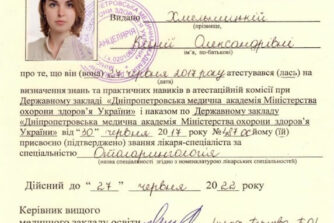 Видано Хмельницькій
(прізвище,
Ксенії Олександрівні
ім'я, по-батькові)
про те, що він (вона) 27 червня 2017 року атестувався (лась) на
визначення знань та практичних навиків в атестаційній комісії при
Державному закладі «Дніпропетровська медична академія Міністерства
охорони здоров'я України» і наказом по Державному закладу
«Дніпропетровська медична академія Міністерства охорони здоров'я
України» від "30" червня 2017 № йому (їй)
присвоєно (підтверджено) звання лікаря-спеціаліста за
спеціальністю Отоларингологія
(назва спеціальності згідно з номенклатурою лікарських спеціальностей)
Дійсний до "27" червня 2022 року
Керівник вищого
медичного закладу освіти